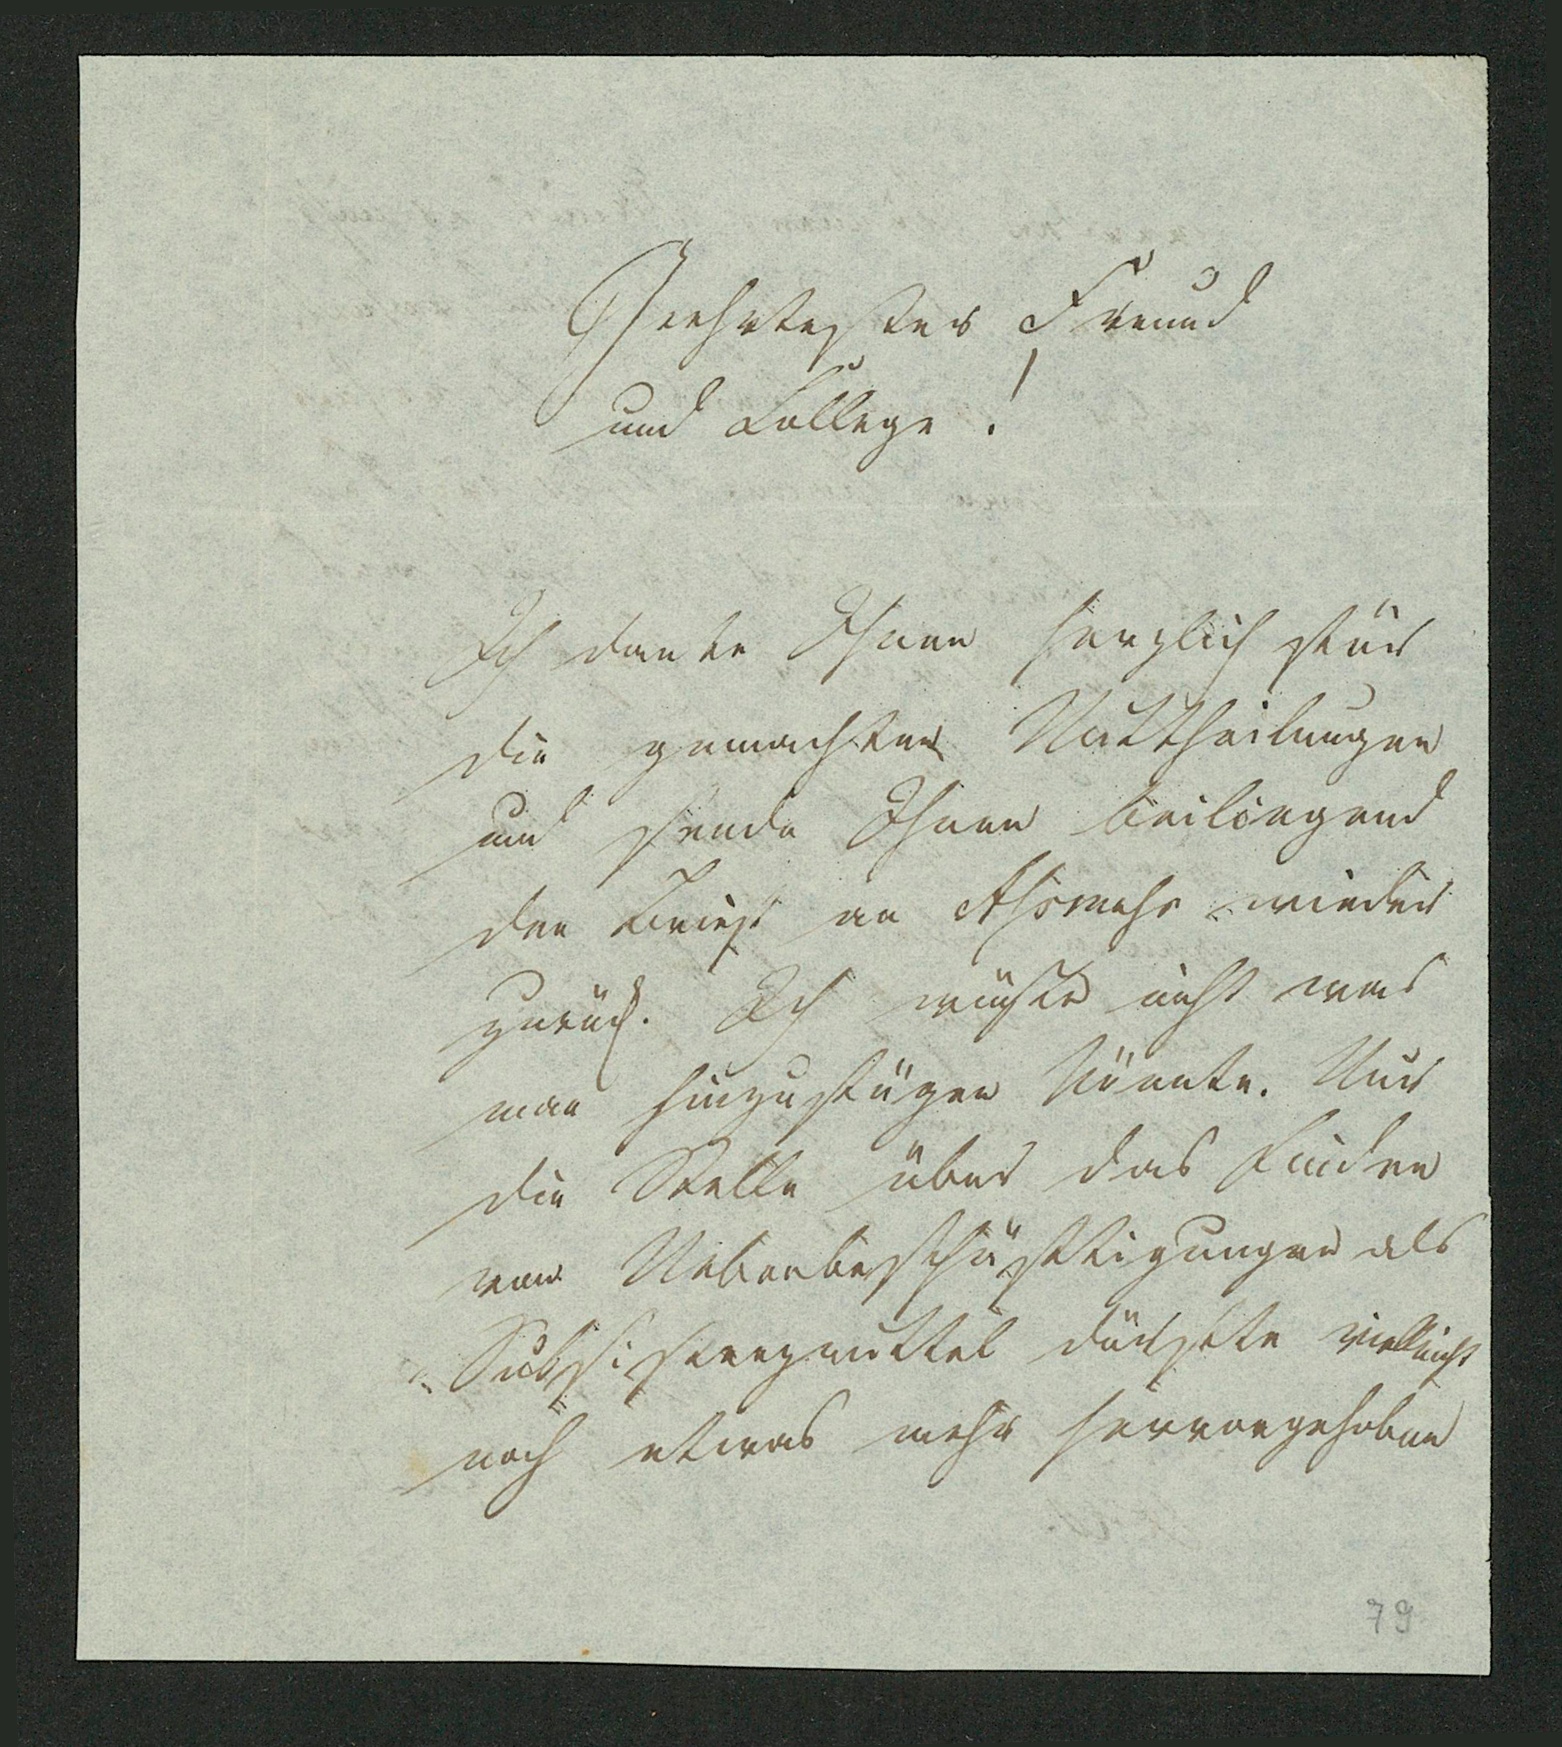 Geehrtester Freund
und College!
Ich danke Ihnen herzlich für
die gemachten Mittheilungen
und sende Ihnen beiliegend
den Brief an wieder
zurück. Ich wüßte nicht was
man hinzufügen könnte. Nur
die Stelle über das Finden
von Nebenbeschäftigungen als
Subsistenzmittel dürfte vielleicht
noch etwas mehr hervorgehoben
79